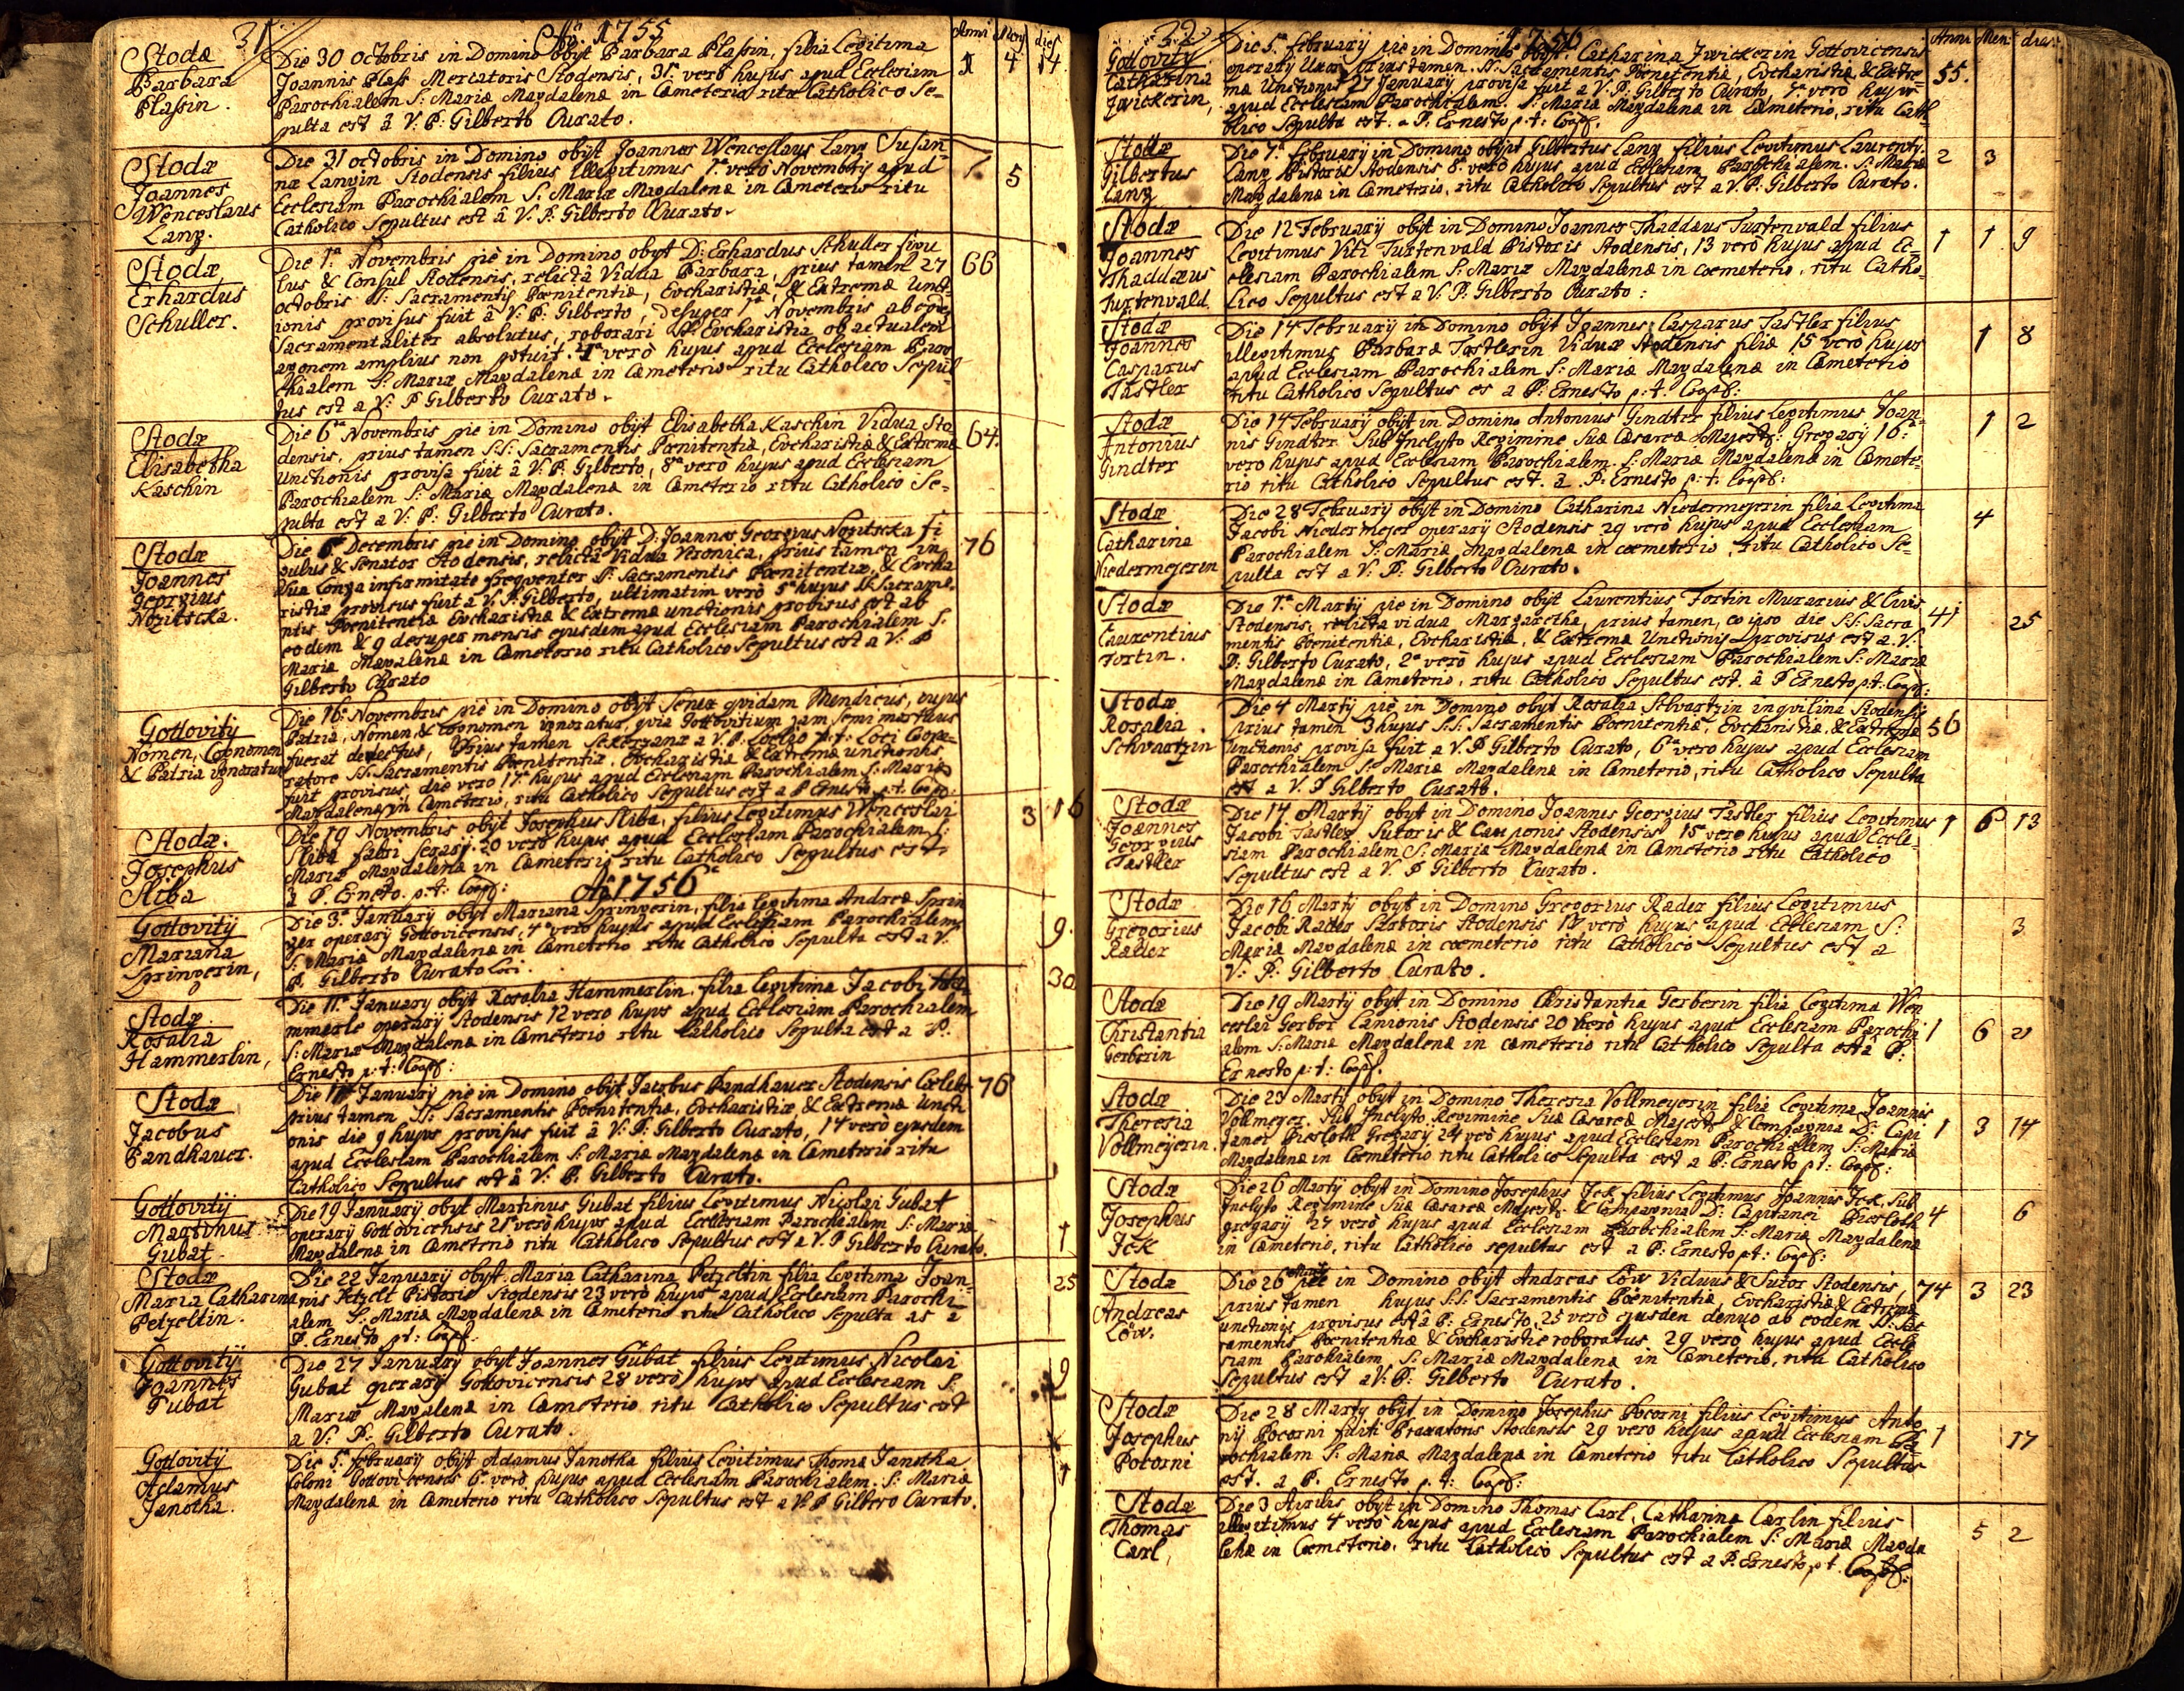 31
Aõ 1755
Anni Mens dies
Stodæ
Barbara
Plassin.
Die 30 octobris in Domino obijt Barbara Plassin, filia Legitima
Joannis Plass Mercatoris Stodensis, 31. verò hujus apud Ecclesiam
Parochialem S: Mariæ Magdalenæ in Cæmeterio ritu Catholico Se-
pulta est â V: P: Gilberto Curato.
1 4 14.
Stodæ
Joannes
Wenceslaus
Lang.
Die 31 octobris in Domino obijt Joannes Wenceslaus Lang Susan-
næ Langin Stodensis filius Illegitimus 1.a verò Novembris apud
Ecclesiam Parochialem S: Mariæ Magdalenæ in Cæmeterio ritu
Catholico Sepultus est â V: P: Gilberto Curato.
5
Stodæ
Erhardus
Schuller.
Die 1.a Novembris piè in Domino obijt D: Erhardus Schuller figu
lus & Consul Stodensis, relictâ Vidua Barbara, prius tamen 27
octobris SS: Sacramentis Pœnitentiæ, Eucharistiæ, & Extremæ Uncti-
ionis provisus fuit â V: P: Gilberto, desuper 1.a Novembris ab eodem
Sacramentaliter absolutus, roborari SS Eucharistia ob actualem
agonem amplius non potuit. 4.a verò hujus apud Ecclesiam Paro
chialem S: Mariæ Magdalenæ in Cæmeterio ritu Catholico Sepul
tus est a V: P Gilberto Curato.
66
Stodæ
Elisabetha
Kaschin
Die 6.ta Novembris pie in Domino obijt Elisabetha Kaschin Vidua Sto
densis, prius tamen S:S: Sacramentis Pœnitentiæ, Eucharistiæ & Extremæ
Unctionis provisa fuit â V: P: Gilberto, 8.a verò hujus apud Ecclesiam
Parochialem S: Mariæ Magdalenæ in Cæmeterio ritu Catholico Se-
pulta est a V: P: Gilberto Curato.
64.
Stodæ
Joannes
Georgius
Nozitscka.
Die 6. Decembris pie in Domino obijt D: Joannes Georgius Nozitscka fi
gulus & Senator Stodensis, relictâ Vidua Veronica, prius tamen in
sua Longa infirmitate frequenter SS: Sacramentis Pœnitentiæ, & Eucha
ristiæ provisus fuit a V: P: Gilberto, ultimatim verò 5.a hujus SS Sacrame-
ntis Pœnitentiæ Eucharistiæ & Extremæ unctionis provisus est ab
eodem & 9 desuper mensis ejusdem apud Ecclesiam Parochialem S.
Mariæ Magdalenæ in Cæmeterio ritu Catholico Sepultus est a V: P
Gilberto Curato
76
Gottovitij
Nomen, Cognomen
& Patria ignoratur
Die 16: Novembris pie in Domino obijt Senex quidam Mendicus, cujus
Patria, Nomen, & Cognomen ignoratur, quia Gottovitium jam semi mortuus
fuerat devectus, prius tamen a V. P. p: t: Loci Coope-
ratore SS: Sacramentis Pœnitentiæ, Eucharistiæ & Extremæ unctionis
fuit provisus, die vero 17.a hujus apud Ecclesiam Parochialem S: Mariæ
Magdalenæ in Cæmeterio, ritu Catholico Sepultus est a P Ernesto p:t: Coop:
Stodæ.
Josephus
Skiba
Die 19 Novembris obijt Josephus Skiba, filius Legitimus Wenceslai
Skiba fabri Serarij. 20 verò hujus apud Ecclesiam Parochialem S:
Mariæ Magdalenæ in Cæmeterio ritu Catholico Sepultus est
â P. Erneto. p:t: Coop:
3 16
Aõ 1756
Gottovitij
Mariana
Springerin,
Die 3.a Januarij obijt Mariana Springerin, filia legitima Andreæ Sprin
ger operarij Gottovicensis, 4.a verò hujus apud Ecclesiam Parochialem
S: Mariæ Magdalenæ in Cæmeterio ritu Catholico Sepulta est a V.
P. Gilberto Curato Loci.
9.
Stodæ.
Rosalia
Hammerlin,
Die 11.a Januarij obijt Rosalia Hammerlin, filia legitima Jacobi Ha
mmerle operarij Stodensis 12 verò hujus apud Ecclesiam Parochialem
S: Mariæ Magdalenæ in Cæmeterio ritu Catholico Sepulta est a P:
Ernesto p:t: Coop:
30
Stodæ
Jacobus
Bandhauer.
Die Januarij pie in Domino obijt Jacobus Bandhauer Stodensis Cœlebs
prius tamen SS: Sacramentis Pœnitentiæ, Eucharistiæ & Extremæ Uncti
onis die 9 hujus provisus fuit â V: P: Gilberto Curato, 17 verò ejusdem
apud Ecclesiam Parochialem S: Mariæ Magdalenæ in Cæmeterio ritu
Catholico Sepultus est â V: P: Gilberto Curato.
76
Gottovitij
Martinus
Gubat
Die 19 Januarij obijt Martinus Gubat filius Legitimus Nicolai Gubat
operarij Gottovicensis verò hujus apud Ecclesiam Parochialem S: Mariæ
Magdalenæ in Cæmeterio ritu Catholico Sepultus est a V. P Gilberto Curato.
1
Stodæ
Maria Catharina
Petzeltin.
Die 22 Januarij obijt. Maria Catharina Petzeltin filia Legitima Joan-
nis Petzelt Pistoris Stodensis 23 verò hujus apud Ecclesiam Parochi-
alem S: Mariæ Magdalenæ in Cæmeterio ritu Catholico Sepulta as a
P. Ernesto pt: Coop:
25
Gottovitij
Joannes
Gubat
Die 27 Januarij obijt Joannes Gubat filius Legitimus Nicolai
Gubat operarij Gottovicensis 28 verò hujus apud Ecclesiam S:
Mariæ Magdalenæ in Cæmeterio ritu Catholico Sepultus est
a V: P: Gilberto Curato.
9
Gottovitij
Adamus
Janotha.
Die 5. february obijt Adamus Janotha filius Legitimus Thomæ Janotha
Coloni Gottovicensis 6.a verò hujus apud Ecclesiam Parochialem. S: Mariæ
Magdalenæ in Cæmeterio ritu Catholico Sepultus est a V: P Gilbero Curato.
1
32
1756
Anni Men: dies
Gottovitij
Catharina
Zwickerin,
Die 5.a february pie in Domino obijt. Catharina Zwickerin Gottovicensis
operarij Uxor, prius tamen. SS: Sacramentis Pœnitentiæ, Eucharistiæ & Extre-
mæ Unctionis 27 Januarij provisa fuit a V: P: Gilberto Curato, 7.a verò hujus
apud Ecclesiam Parochialem. S: Mariæ Magdalenæ in Cæmeterio, ritu Cath
olico Sepulta est. a P: Ernesto p:t: Coop:
55.
Stodæ
Gilbertus
Lang
Die 7.a february in Domino obijt Gilbertus Lang filius Legitimus Laurentij
Lang Pistoris Stodensis 8.a verò hujus apud Ecclesiam Parochialem. S: Mariæ
Magdalenæ in Cæmeterio, ritu Catholico Sepultus est a V. P: Gilberto Curato.
2 3
Stodæ
Joannes
Thaddæus
Turtenvald.
Die 12 February obijt in Domino Joannes Thaddæus Turtenvald filius
Legitimus Viti Turtenvald Pistoris Stodensis, 13 verò hujus apud Ec-
clesiam Parochialem S: Mariæ Magdalenæ in cœmeterio, ritu Catho-
lico Sepultus est a V: P: Gilberto Curato:
1 1 9
Stodæ
Joannes
Casparus
Tastler
Die 14 February in Domino obijt Joannes Casparus Tastler filius
illegitimus Barbaræ Tastlerin Viduæ Stodensis filiæ 15 verò hujus
apud Ecclesiam Parochialem S: Mariæ Magdalenæ in Cæmeterio
ritu Catholico Sepultus es a P: Ernesto p:t: Coop:
1 8
Stodæ
Antonius
Gindter
Die 14 February obijt in Domino Antonius Gindter filius Legitimus Joan-
nis Gindter Sub Inclyto Regimine Suæ Cæsareæ Majest: Gregarij 16:a
vero hujus apud Ecclesiam Parochialem. S: Mariæ Magdalenæ in Cæmete-
rio ritu Catholico Sepultus est. a. P: Ernesto p:t: Coop:
1 2
Stodæ
Catharina
Niedermejerin
Die 28 February obijt in Domino Catharina Niedermejerin filia Legitima
Jacobi Niedermejer operarij Stodensis 29 verò hujus apud Ecclesiam
Parochialem S: Mariæ Magdalenæ in cœmeterio, ritu Catholico Se-
pulta est a V: P: Gilberto Curato.
4
Stodæ
Laurentius
Fortin.
Die 1.a Martij pie in Domino obijt Laurentius Fortin Murarius & Civis
Stodensis, relicta vidua Margaretha, prius tamen, eo ipso die S.S: Sacra
mentis Pœnitentiæ, Eucharistiæ, & Extremæ Unctionis provisus est a. V:
P: Gilberto Curato, 2.a verò hujus apud Ecclesiam Parochialem S: Mariæ
Magdalenæ in Cæmeterio, ritu Catholico Sepultus est. â P Ernesto p:t: Coop:
41 25
Stodæ
Rosalia
Schvartzin
Die 4 Martij piè in Domino obijt Rosalia Schvartzin inqvilina Stodensis
prius tamen 3 hujus S.S. Sacramentis Pœnitentiæ, Eucharistiæ, & Extremæ
unctionis provisa fuit a V. P Gilberto Curato, 6.a vero hujus apud Ecclesiam
Parochialem S: Mariæ Magdalenæ in Cæmeterio, ritu Catholico Sepulta
est a V. P Gilberto Curato.
56
Stodæ
Joannes
Georgius
Tastler
Die 14 Martij obijt in Domino Joannes Georgius Tastler filius Legitimus
Jacobi Tastler Sutoris & Cauponis Stodensis 15 vero hujus apud Eccle-
siam Parochialem S: Mariæ Magdalenæ in Cæmeterio ritu Catholico
Sepultus est a V. P Gilberto Curato.
1 6 13
Stodæ
Gregorius
Rader
Die 16 Martij obijt in Domino Gregorius Ræder filius Legitimus
Jacobi Rader Sartoris Stodensis verò hujus apud Ecclesiam S:
Mariæ Magdalenæ in cœmeterio ritu Catholico Sepultus est a
V: P: Gilberto Curato.
3
Stodæ
Christantia
Gerberin
Die 19 Martij obijt in Domino Christantia Gerberin filia Legitima Wen
ceslai Gerber Lanionis Stodensis 20 verò hujus apud Ecclesiam Parochi
alem S: Mariæ Magdalenæ in cæmeterio ritu Catholico Sepulta est â P:
Ernesto p:t: Coop:
1 6 21
Stodæ
Theresia
Vollmeijerin.
Die 23 Martij obijt in Domino Theresia Vollmeyerin filia Legitima Joannis
Vollmeyer. Sub Inclyto Regimine Suæ Cæsareæ Majest: & Compagnia D: Capi
tanei Biesloth Gregarij 24 verò hujus apud Ecclesiam Parochialem S: Mariæ
Magdalenæ in Cœmeterio ritu Catholico Sepulta est a P: Ernesto pt: Coop:
1 3 14
Stodæ
Josephus
Jck
Die 26 Martij obijt in Domino Josephus Jck filius Legitimus Joannis Jck, Sub
Inclyto Regimine Suæ Cæsareæ Majest: & Compagnia D: Capitanei Biesloth
gregarij 27 verò hujus apud Ecclesiam Parochialem S: Mariæ Magdalenæ
in Cæmeterio, ritu Catholico sepultus est a P: Ernesto pt: Coop:
4 6
Stodæ
Andreas
Löw.
Die 26 Martij pie in Domino obijt Andreas Löw Viduus & Sutor Stodensis,
prius tamen hujus S:S: Sacramentis Pœnitentiæ Eucharistiæ & Extremæ
unctionis provisus est â P: Ernesto, 25 verò ejusden denuo ab eodem SS: Sac
ramentis Pœnitentiæ & Eucharistiæ roboratus, 29 verò hujus apud Eccle
siam Parohialem S: Mariæ Magdalenæ in Cæmeterio, ritu Catholico
Sepultus est a V: P: Gilberto Curato.
74 3 23
Stodæ
Josephus
Pocorni
Die 28 Martij obijt in Domino Josephus Pocorni filius Legitimus Anto
nij Pocorni Braxatoris Stodensis 29 vero hujus apud Ecclesiam Pa-
rochialem S: Mariæ Magdalenæ in Cæmeterio ritu Catholico Sepultus
est. a P. Ernesto p.t: Coop:
1 17
Stodæ
Thomas
Carl,
Die 3 Aprilis obijt in Domino Thomas Carl, Catharinæ Carlin filius
illegitimus 4 verò hujus apud Ecclesiam Parochialem S: Mariæ Magda
lenæ in Cœmeterio, ritu Catholico Sepultus est a P: Ernesto pt. Coop:
5 2